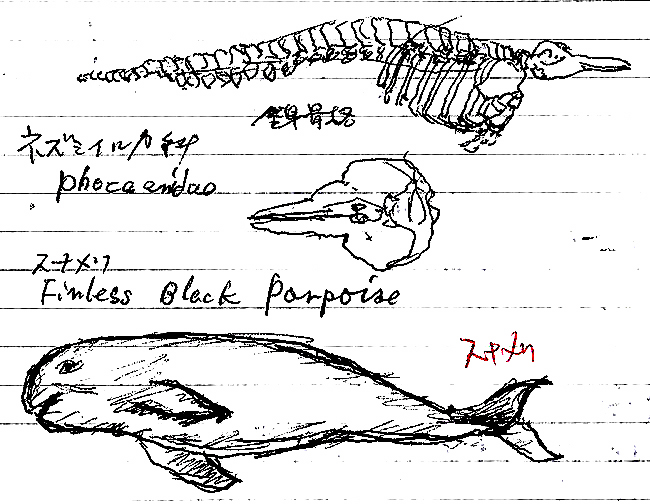 全身骨格
ネズミイルカ科
phocaenidae
スナメリ
Finless Black Porpoise
スナメリ